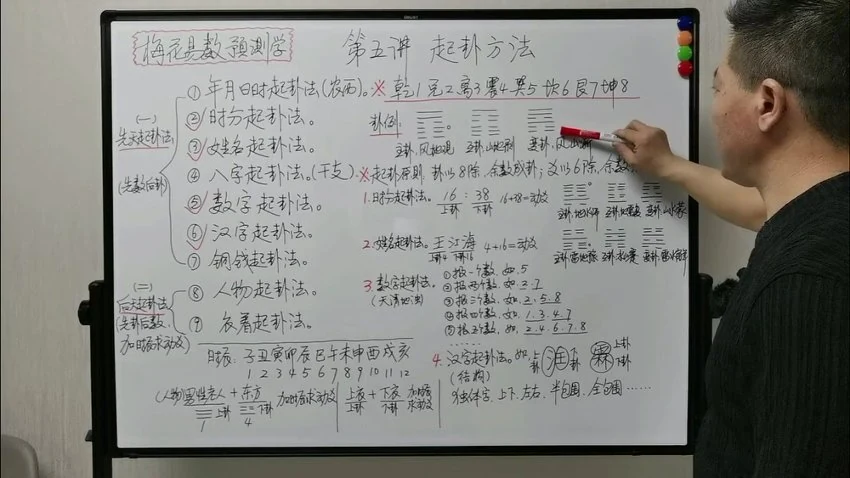 梅花易数预测学
第五讲 起卦方法
(一)
先天起卦法
(先数后卦)
① 年月日时起卦法(农历)。
② 时分起卦法。
③ 姓名起卦法。
④ 八字起卦法。(干支)
⑤ 数字起卦法。
⑥ 汉字起卦法。
⑦ 铜钱起卦法。
(二)
后天起卦法
(先卦后数,
加时辰求动爻)
⑧ 人物起卦法。
⑨ 衣着起卦法。
时辰: 子丑寅卯辰巳午未申酉戌亥
1 2 3 4 5 6 7 8 9 10 11 12
(人物男性老人+东方 加时辰求动爻
上卦 下卦
1 4
上衣+下衣 加时辰求动爻
上卦 下卦
※ 乾1 兑2 离3 震4 巽5 坎6 艮7 坤8
卦例:
主卦.风地观 互卦.山地剥 变卦.风山渐
※起卦原则. 卦以8除,余数成卦;爻以6除,余数
1.时分起卦法. 16:38 16+38=动爻
上卦 下卦
2.姓名起卦法. 王江海 4+16=动爻
上卦4 下卦16
3.数字起卦法.
(天清地浊)
①报一个数.如.5
②报两个数.如.2.7
③报三个数.如.2.5.8
④报四个数.如.1.3.4.7
⑤报五个数.如.2.4.6.7.8
……
主卦.地水师 互卦.地雷复 变卦.山水蒙
主卦.雷地豫 互卦.水山蹇 变卦.雷水解
4.汉字起卦法.如.上卦 汪 下卦 霖 上卦 下卦
(结构)
独体字,上下,左右,半包围,全包围……